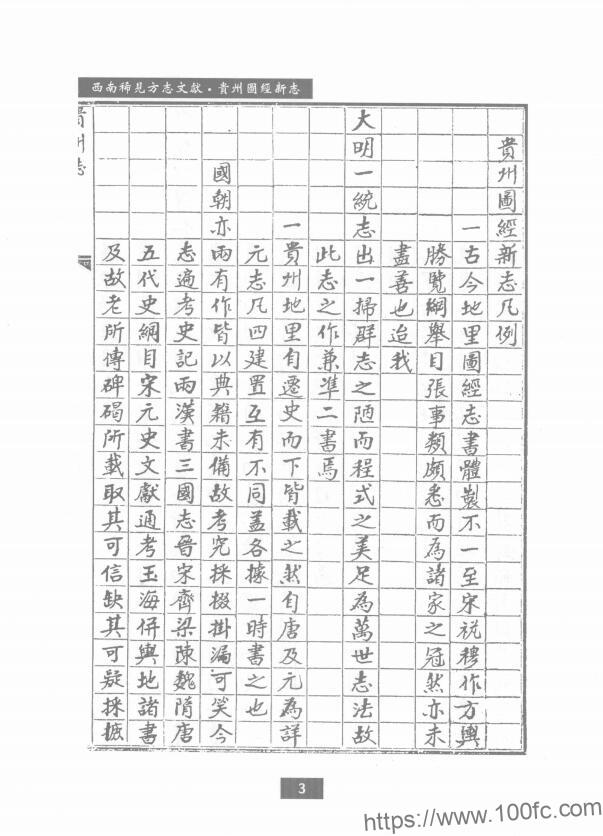 西南稀見方志文獻·貴州圖經新志
貴州圖經新志凡例
一古今地里圖經志書體製不一至宋祝穆作方輿
勝覽綱舉目張事類頗悉而為諸家之冠然亦未
盡善也迨我
大明一統志出一掃群志之陋而程式之美足為萬世志法故
此志之作兼準二書焉
一貴州地里自遷史而下皆載之然自唐及元為詳
元志凡四建置互有不同盖各據一時書之也
國朝亦兩有作皆以典籍未備故考究採掇掛漏可笑今
志遍考史記兩漢書三國志晉宋齊梁陳魏隋唐
五代史綱目宋元史文獻通考玉海併輿地諸書
及故老所傳碑碣所載取其可信缺其可疑採摭
貴州志
3
https://www.100fc.com